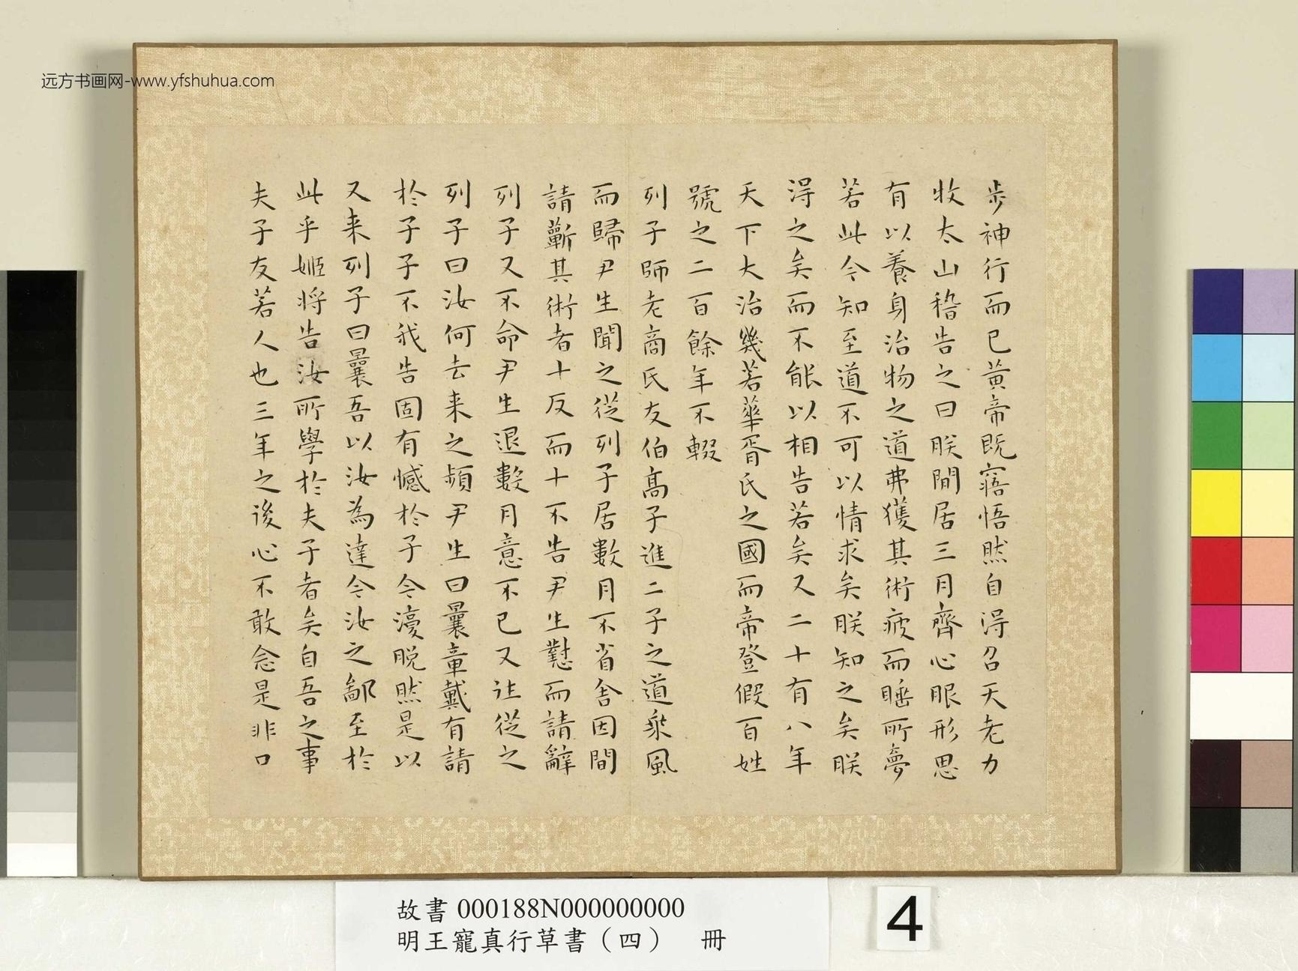 远方书画网-www.yfshuhua.com
步神行而已黃帝既寤悟然自得召天老力
牧太山稽告之曰朕閒居三月齊心眼形思
有以養身治物之道弗獲其術疲而睡所夢
若此今知至道不可以情求矣朕知之矣朕
得之矣而不能以相告若矣又二十有八年
天下大治幾若華胥氏之國而帝登假百姓
號之二百餘年不輟
列子師老商氏友伯高子進二子之道乘風
而歸尹生聞之從列子居數月不省舍因間
請蘄其術者十反而十不告尹生懟而請辭
列子又不命尹生退數月意不已又往從之
列子曰汝何去来之頻尹生曰曩章戴有請
於子子不我告固有憾於子今濅脫然是以
又来列子曰曩吾以汝為達今汝之鄙至於
此乎姬將告汝所學於夫子者矣自吾之事
夫子友若人也三年之後心不敢念是非口
故書 000188N000000000
明王寵真行草書（四） 冊
4